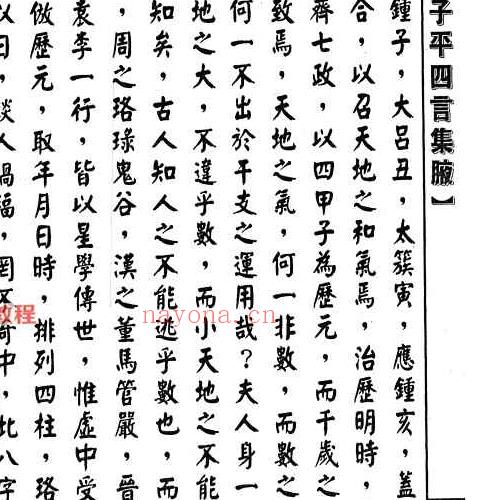 子平四言集腋】
鍾子,大呂丑,太簇寅,應鍾亥,蓋
合,以召天地之和氣焉,治歷明時,
齊七政,以四甲子為歷元,而千歲之
致焉,天地之氣,何一非數,而數之
何一不出於干支之運用哉?夫人身一
地之大,不違乎數,而小天地之不能
知矣,古人知人之不能逃乎數也,而
,周之珞琭鬼谷,漢之董馬管嚴,晉
袁李一行,皆以星學傳世,惟虛中受
倣歷元,取年月日時,排列四柱,珞
以日,談人禍福,罔奇中,此八字
教程
nayona.cn